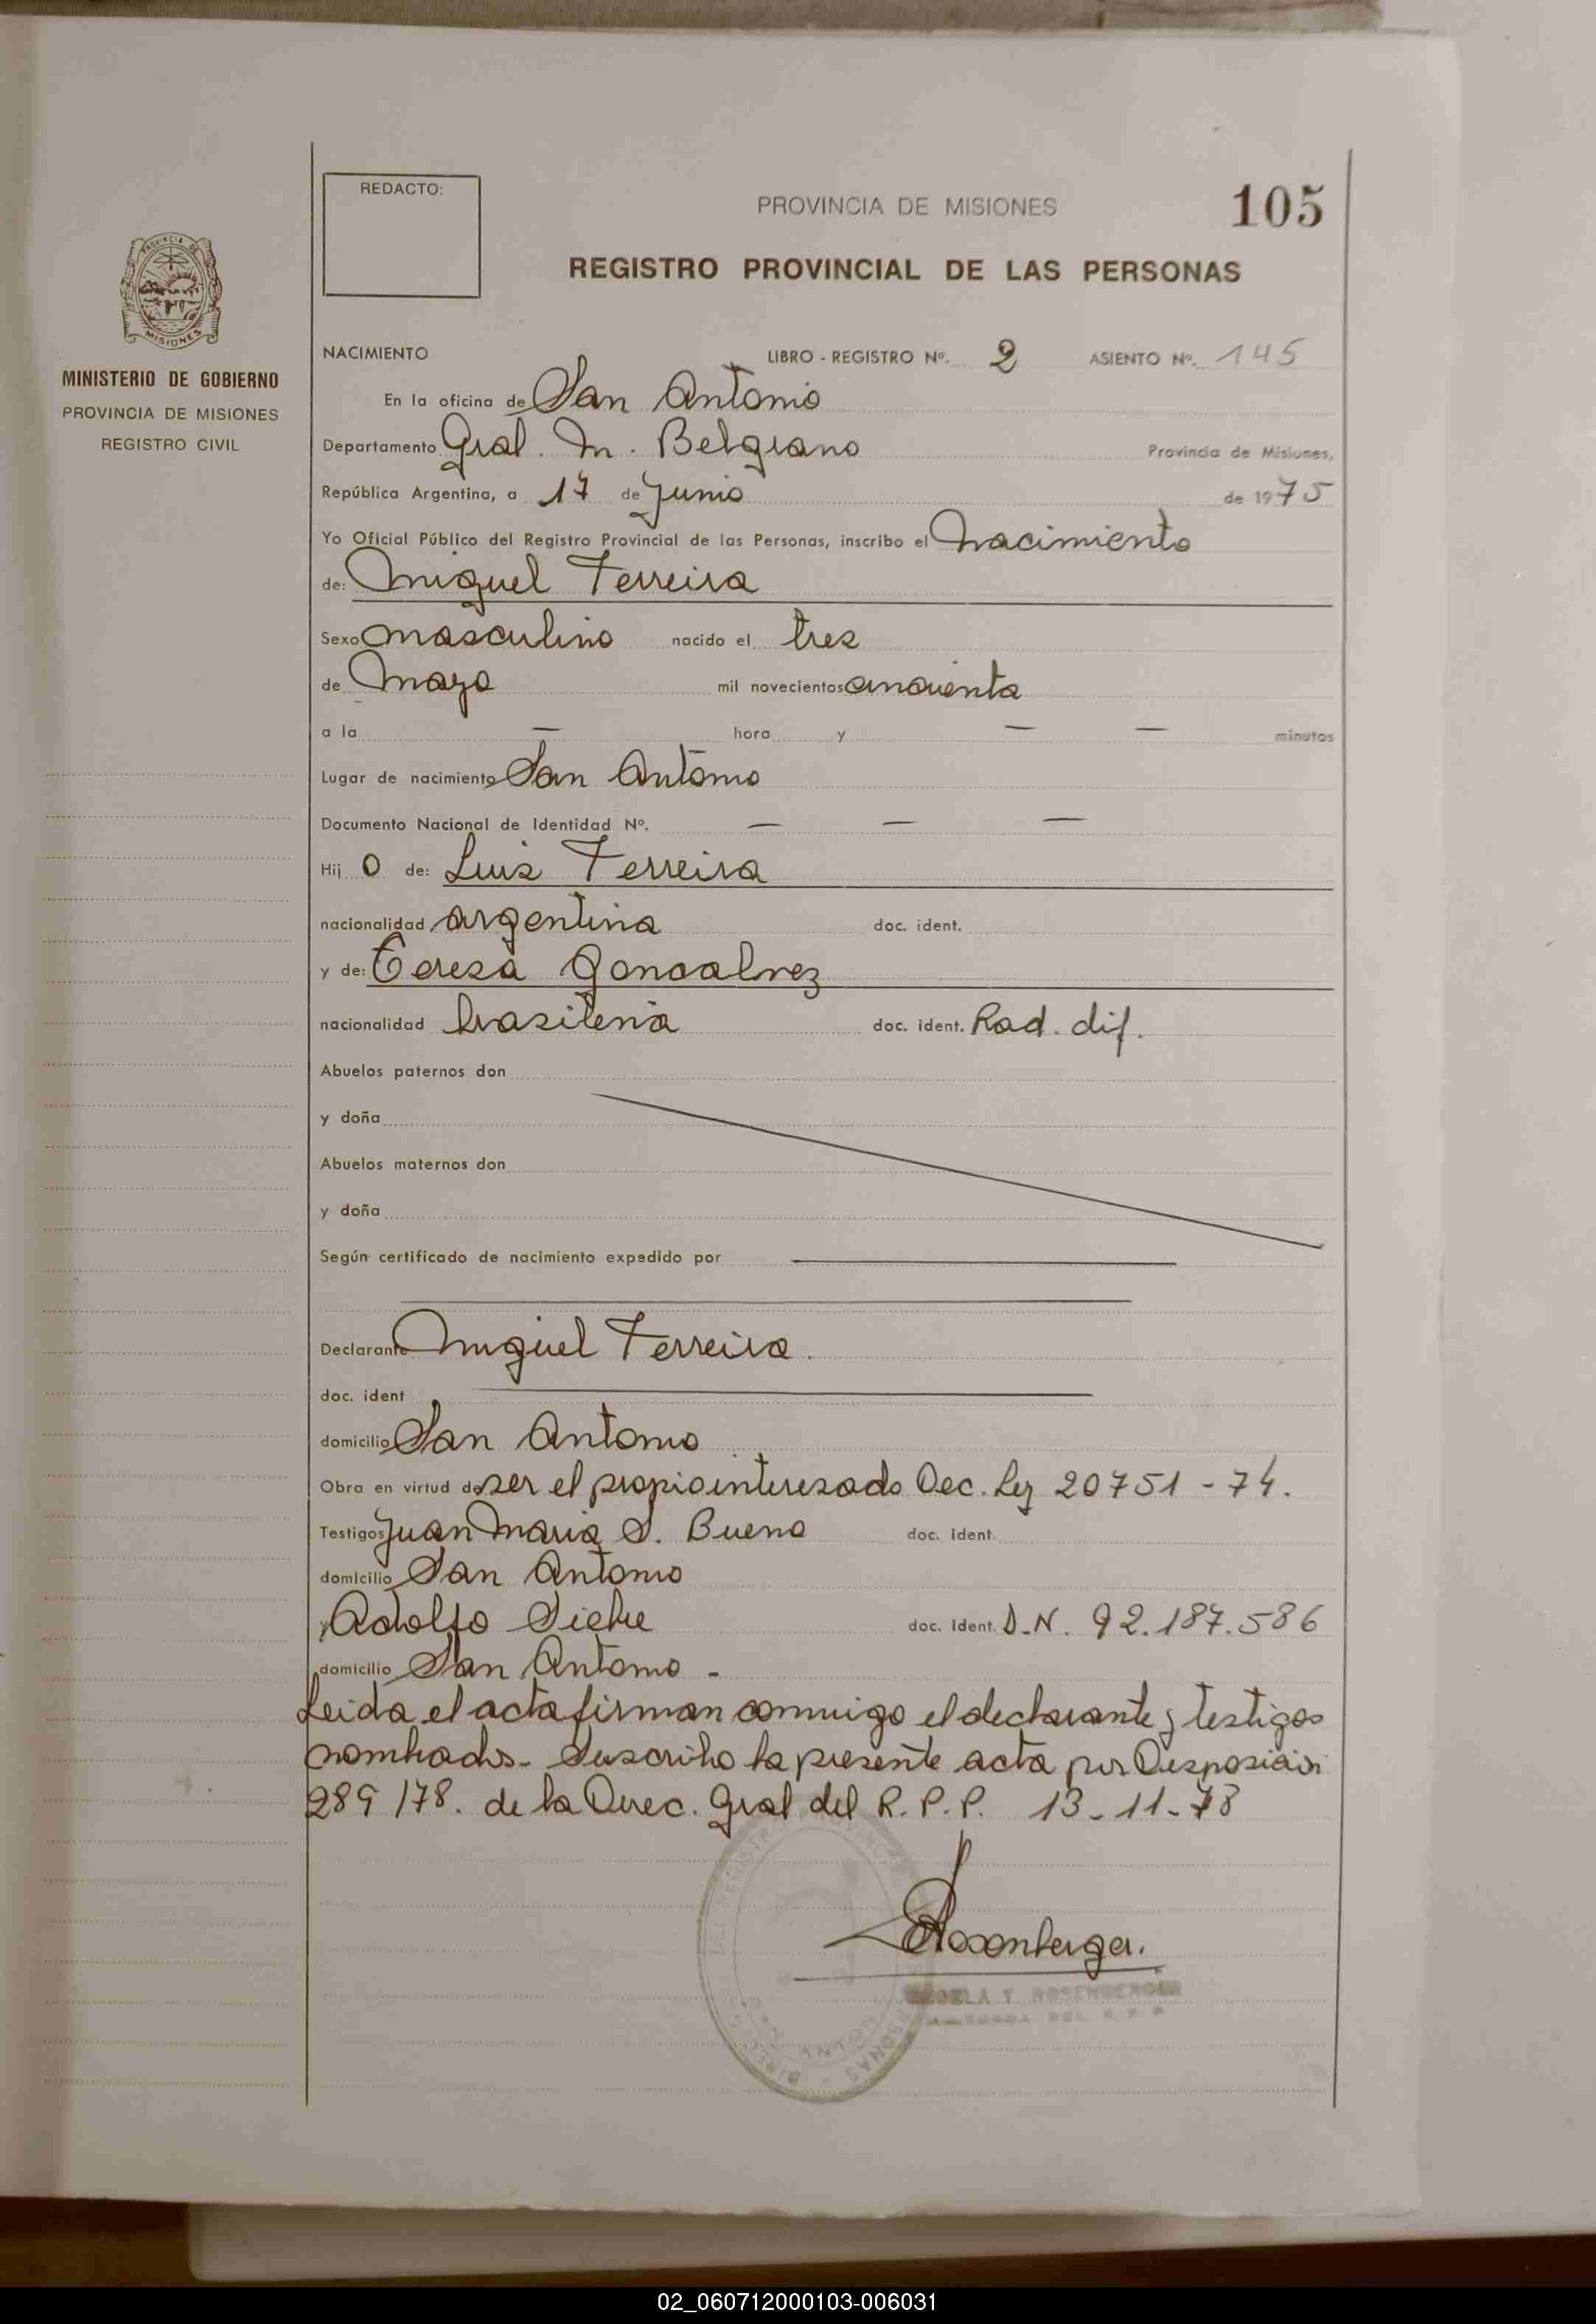 REDACTO:
PROVINCIA DE MISIONES
105
REGISTRO PROVINCIAL DE LAS PERSONAS
MISIONES
MINISTERIO DE GOBIERNO
PROVINCIA DE MISIONES
REGISTRO CIVIL
NACIMIENTO LIBRO - REGISTRO Nº. 2 ASIENTO Nº. 145
En la oficina de San Antonio
Departamento Gral. M. Belgrano Provincia de Misiones,
República Argentina, a 17 de Junio de 1975
Yo Oficial Público del Registro Provincial de las Personas, inscribo el Nacimiento
de: Miguel Ferreira
Sexo masculino nacido el tres
de Mayo mil novecientos cincuenta
a la — hora y — — minutos
Lugar de nacimiento San Antonio
Documento Nacional de Identidad Nº. — — —
Hij o de: Luis Ferreira
nacionalidad argentina doc. ident.
y de: Teresa Goncalvez
nacionalidad brasilena doc. ident. Rad. dif.
Abuelos paternos don
y doña
Abuelos maternos don
y doña
Según certificado de nacimiento expedido por
Declarante Miguel Ferreira.
doc. ident
domicilio San Antonio
Obra en virtud de ser el propio interesado Dec. Ley 20751-74.
Testigos Juan Maria S. Bueno doc. ident.
domicilio San Antonio
y Adolfo doc. ident. D.N. 92.187.586
domicilio San Antonio -
Leida el acta firman conmigo el declarante y testigos
nombrados- Suscribo la presente acta por Disposición
289/78. de la Direc. Gral del R.P.P. 13-11-78
Rosenberger.
Y ROSENBERGER
DEL R P P
02_060712000103-006031